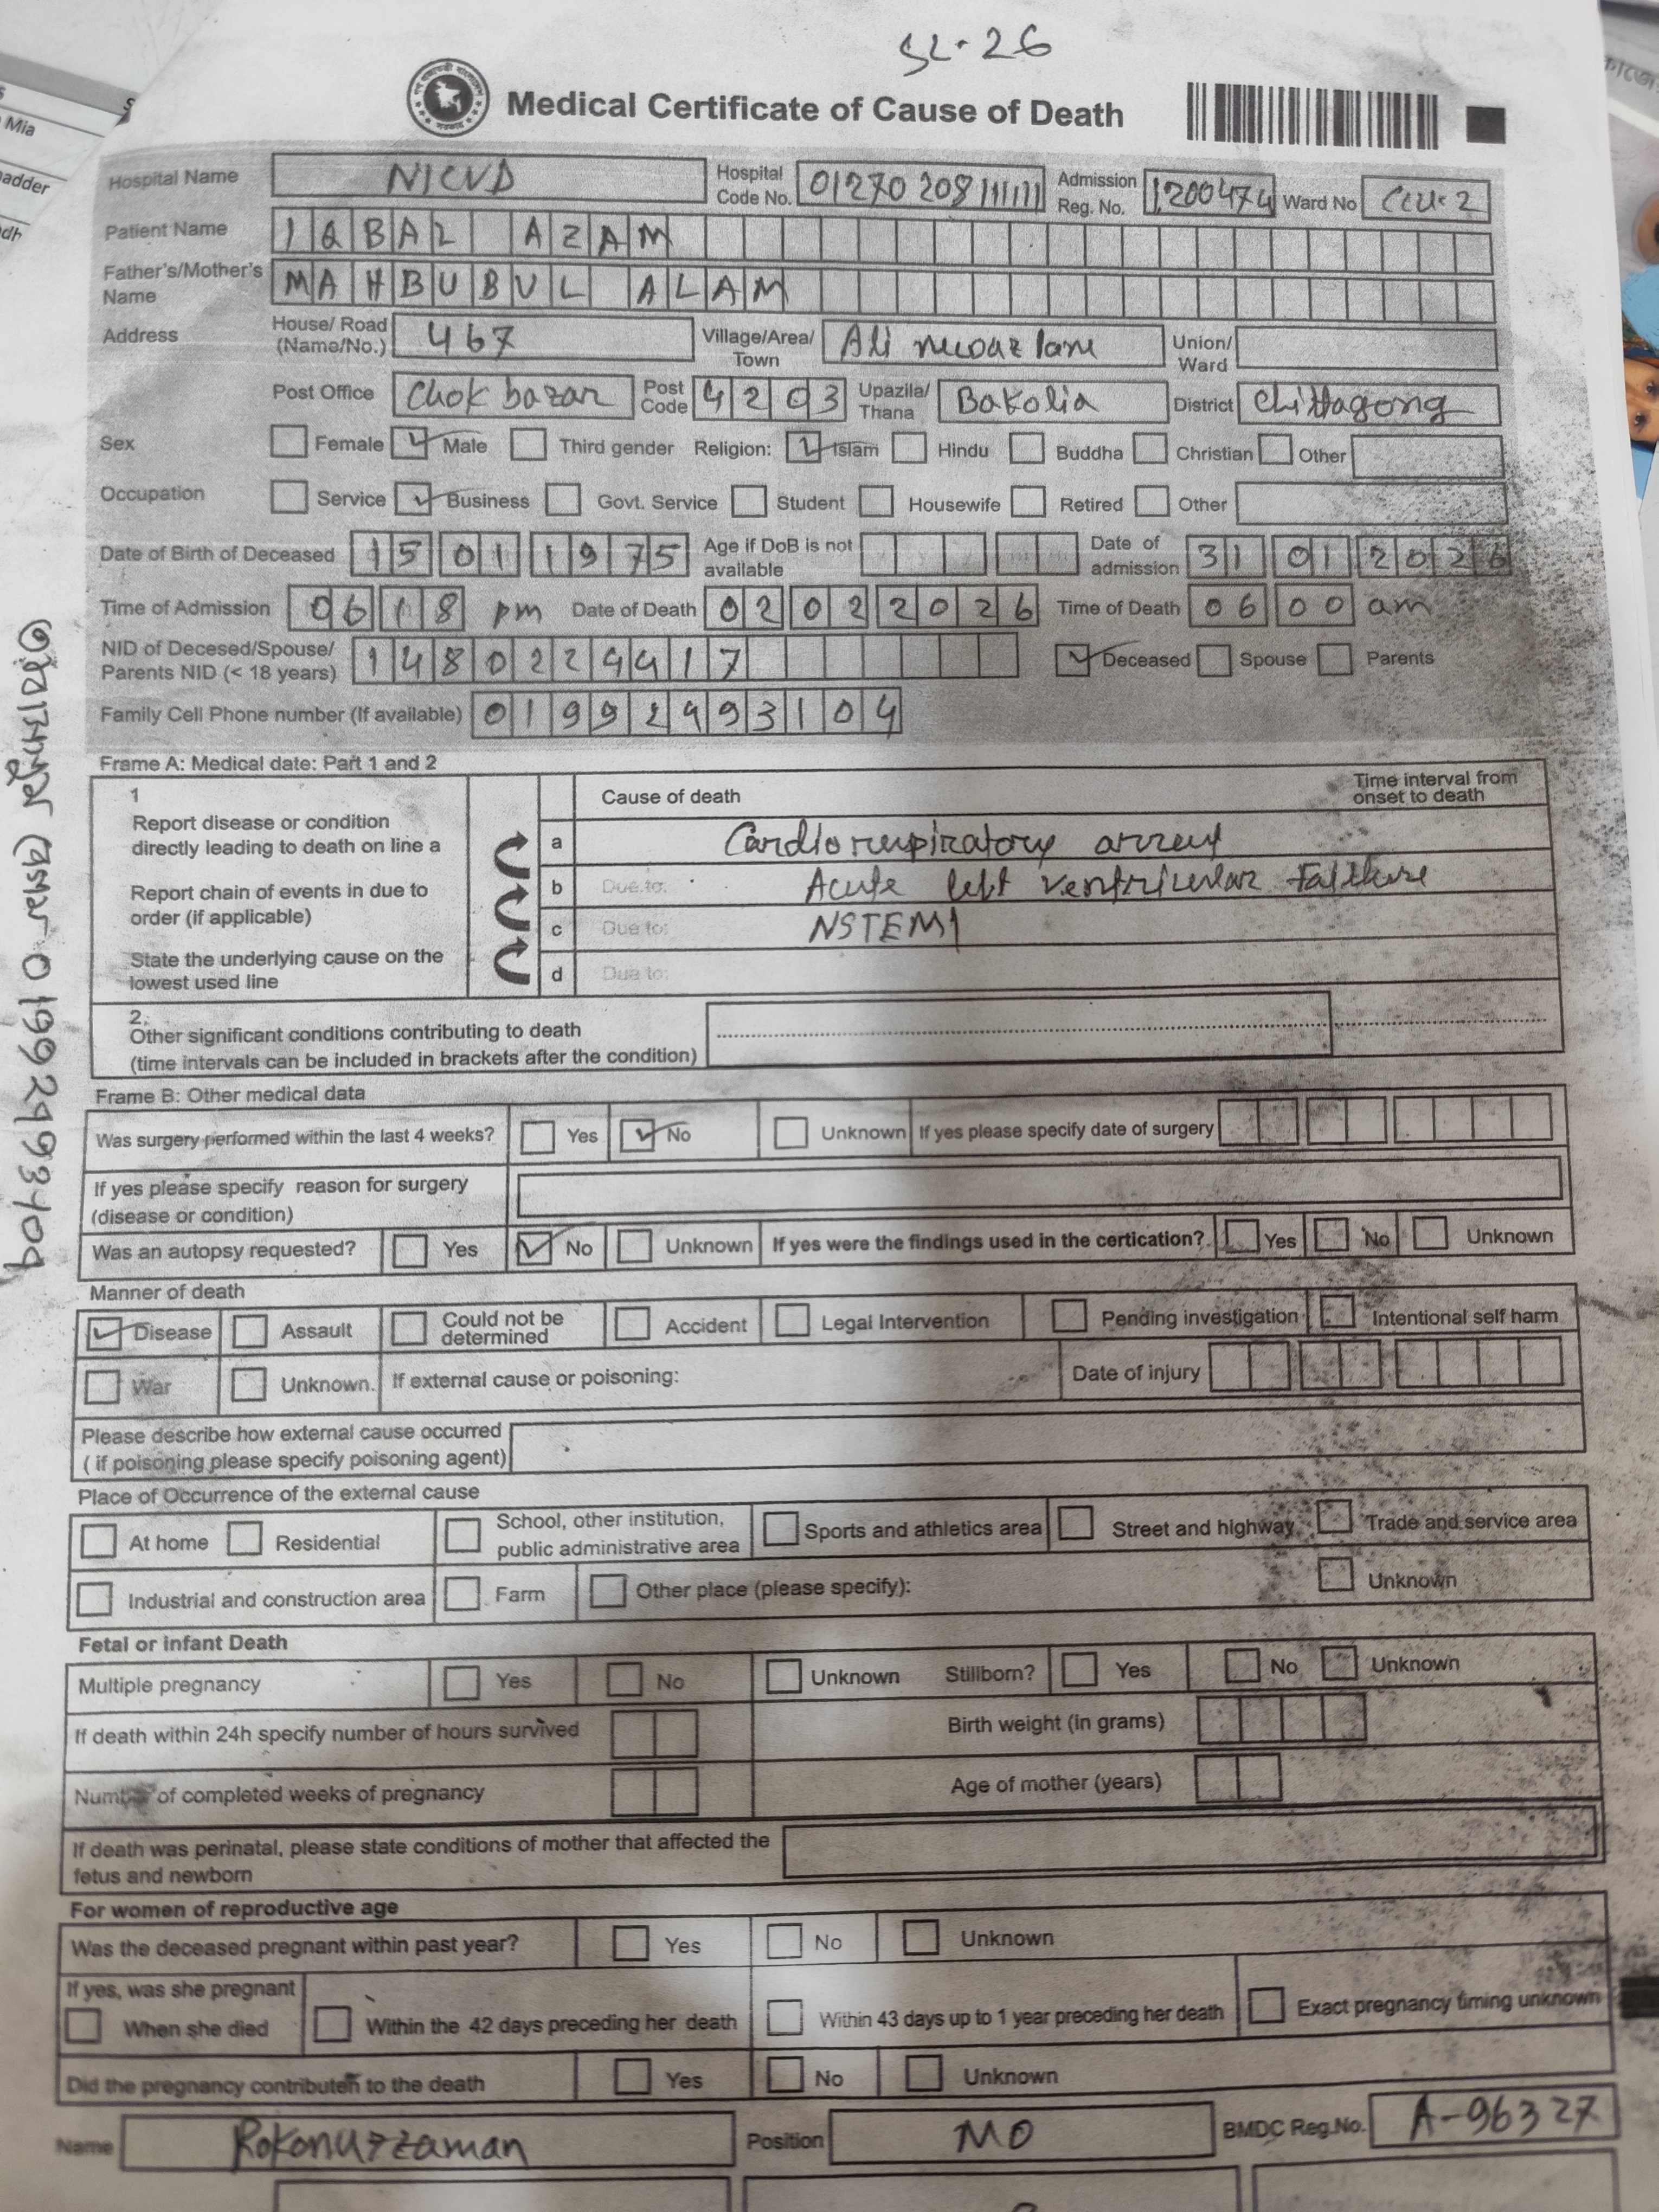 SL-26
Medical Certificate of Cause of Death
Hospital Name NICVD Hospital Code No. 01270 208 Admission Reg. No. 1200474 Ward No CCU-2
Patient Name IQBAL AZAM
Father's/Mother's Name MAHBUBUL ALAM
Address House/ Road (Name/No.) 467 Village/Area/ Town Ali newaz lane Union/ Ward
Post Office Chok bazar Post Code 4203 Upazila/ Thana Bakolia District Chittagong
Sex Female Male Third gender Religion: Islam Hindu Buddha Christian Other
Occupation Service Business Govt. Service Student Housewife Retired Other
Date of Birth of Deceased 15 01 1975 Age if DoB is not available Date of admission 31 01 2026
Time of Admission 06 18 pm Date of Death 02 02 2026 Time of Death 06 00 am
NID of Decesed/Spouse/ Parents NID (< 18 years) 1480229917 Deceased Spouse Parents
Family Cell Phone number (If available)
Frame A: Medical date: Part 1 and 2
1 Cause of death Time interval from onset to death
Report disease or condition directly leading to death on line a
a Cardiorespiratory arrest
Report chain of events in due to order (if applicable)
b Due to: Acute left ventricular failure
c Due to: NSTEMI
State the underlying cause on the lowest used line
d Due to:
2.
Other significant conditions contributing to death
(time intervals can be included in brackets after the condition)
Frame B: Other medical data
Was surgery performed within the last 4 weeks? Yes No Unknown If yes please specify date of surgery
If yes please specify reason for surgery
(disease or condition)
Was an autopsy requested? Yes No Unknown If yes were the findings used in the certication? Yes No Unknown
Manner of death
Disease Assault Could not be determined Accident Legal Intervention Pending investigation Intentional self harm
War Unknown. If external cause or poisoning: Date of injury
Please describe how external cause occurred
( if poisoning please specify poisoning agent)
Place of Occurrence of the external cause
At home Residential School, other institution, public administrative area Sports and athletics area Street and highway Trade and service area
Industrial and construction area Farm Other place (please specify): Unknown
Fetal or infant Death
Multiple pregnancy Yes No Unknown Stillborn? Yes No Unknown
If death within 24h specify number of hours survived Birth weight (in grams)
Number of completed weeks of pregnancy Age of mother (years)
If death was perinatal, please state conditions of mother that affected the
fetus and newborn
For women of reproductive age
Was the deceased pregnant within past year? Yes No Unknown
If yes, was she pregnant
When she died Within the 42 days preceding her death Within 43 days up to 1 year preceding her death Exact pregnancy timing unknown
Did the pregnancy contributen to the death Yes No Unknown
Name Rokonuzzaman Position MO BMDC Reg.No. A-96327